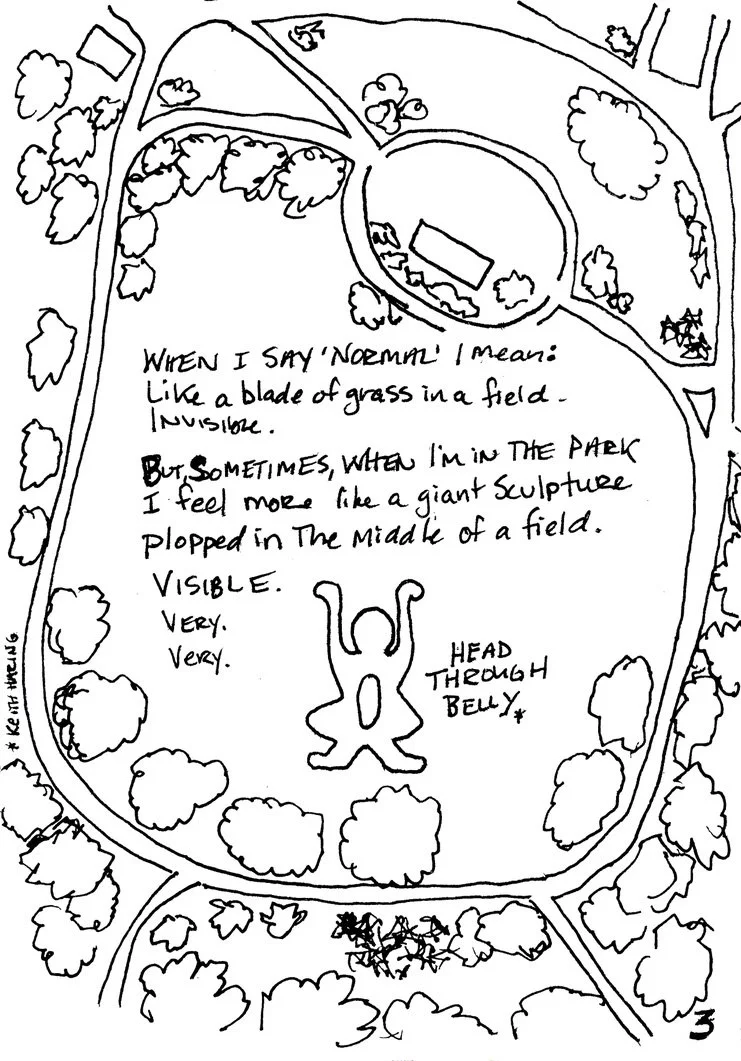 WHEN I SAY 'NORMAL' I mean:
Like a blade of grass in a field -
INVISIBLE.
BUT, SOMETIMES, WHEN I'M IN THE PARK
I feel more like a giant Sculpture
plopped in The Middle of a field.
VISIBLE.
VERY.
Very.
HEAD
THROUGH
BELLY*
* KEITH HARING
3